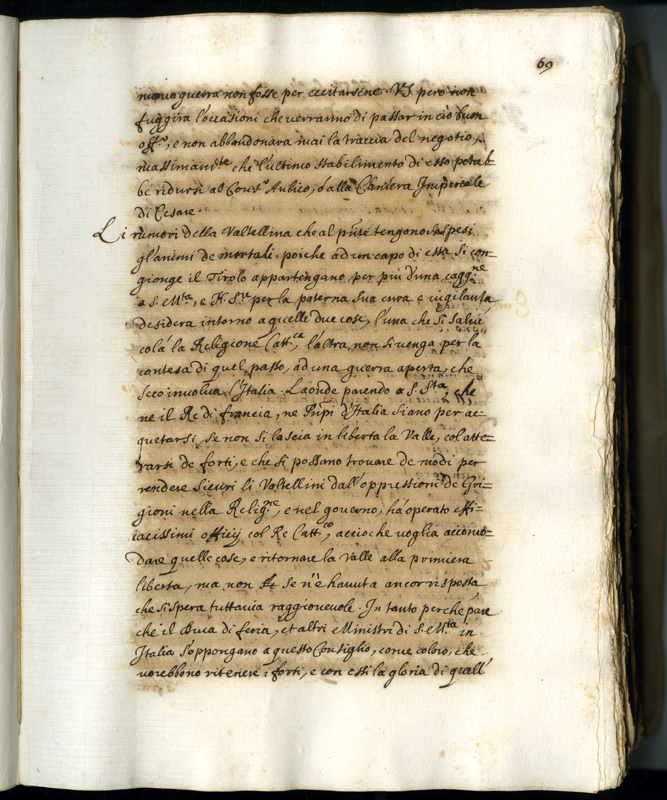 69
nuova guerra non fosse per eccitarsene. V.S. però non
fuggirà l'occasioni che verranno di passar in ciò buon
off.o, e non abbandonarà mai la traccia del negotio,
massimam.te che l'ultimo stabilimento di esso potreb=
be ridursi al Cons.o Aulico, ò alla Camera Imperiale
di Cesare.
Li rumori della Valtellina che al pnte tengono sospesi
gl'animi de mortali, poiche ad un capo di essa si con=
gionge il Tirolo appartengano per più d'una cagg.ne
à S. M.tà, e N. S.re per la paterna sua cura e vigilanza
desidera intorno a quelle due cose, l'una che si salvi
colà la Religione Catt.ca, l'altra non si venga per la
contesa di quel passo, ad una guerra aperta, che
seco involva l'Italia. Laonde parendo a S. S.tà, che
ne il Rè di francia, ne Prīpi d'Italia siano per ac=
quetarsi, se non si lascia in libertà la Valle, col atter=
rarsi de forti, e che si possano trovare de modi per
rendere sicuri li Valtellini dall'oppressioni de Gri=
gioni nella Relig.ne, e nel governo, hà operato effi=
cacissimi officij col Rè Catt.co, acciò che voglia accomo=
dare quelle cose, e ritornare la Valle alla primiera
libertà, ma non se n'è havuta ancor risposta
che si spera tuttavia raggionevole. In tanto perche pare
che il Duca di feria, et altri Ministri di S. M.tà in
Italia s'oppongano a questo Consiglio, come coloro, che
vorebbono ritenere i forti, e con essi la gloria di quell'